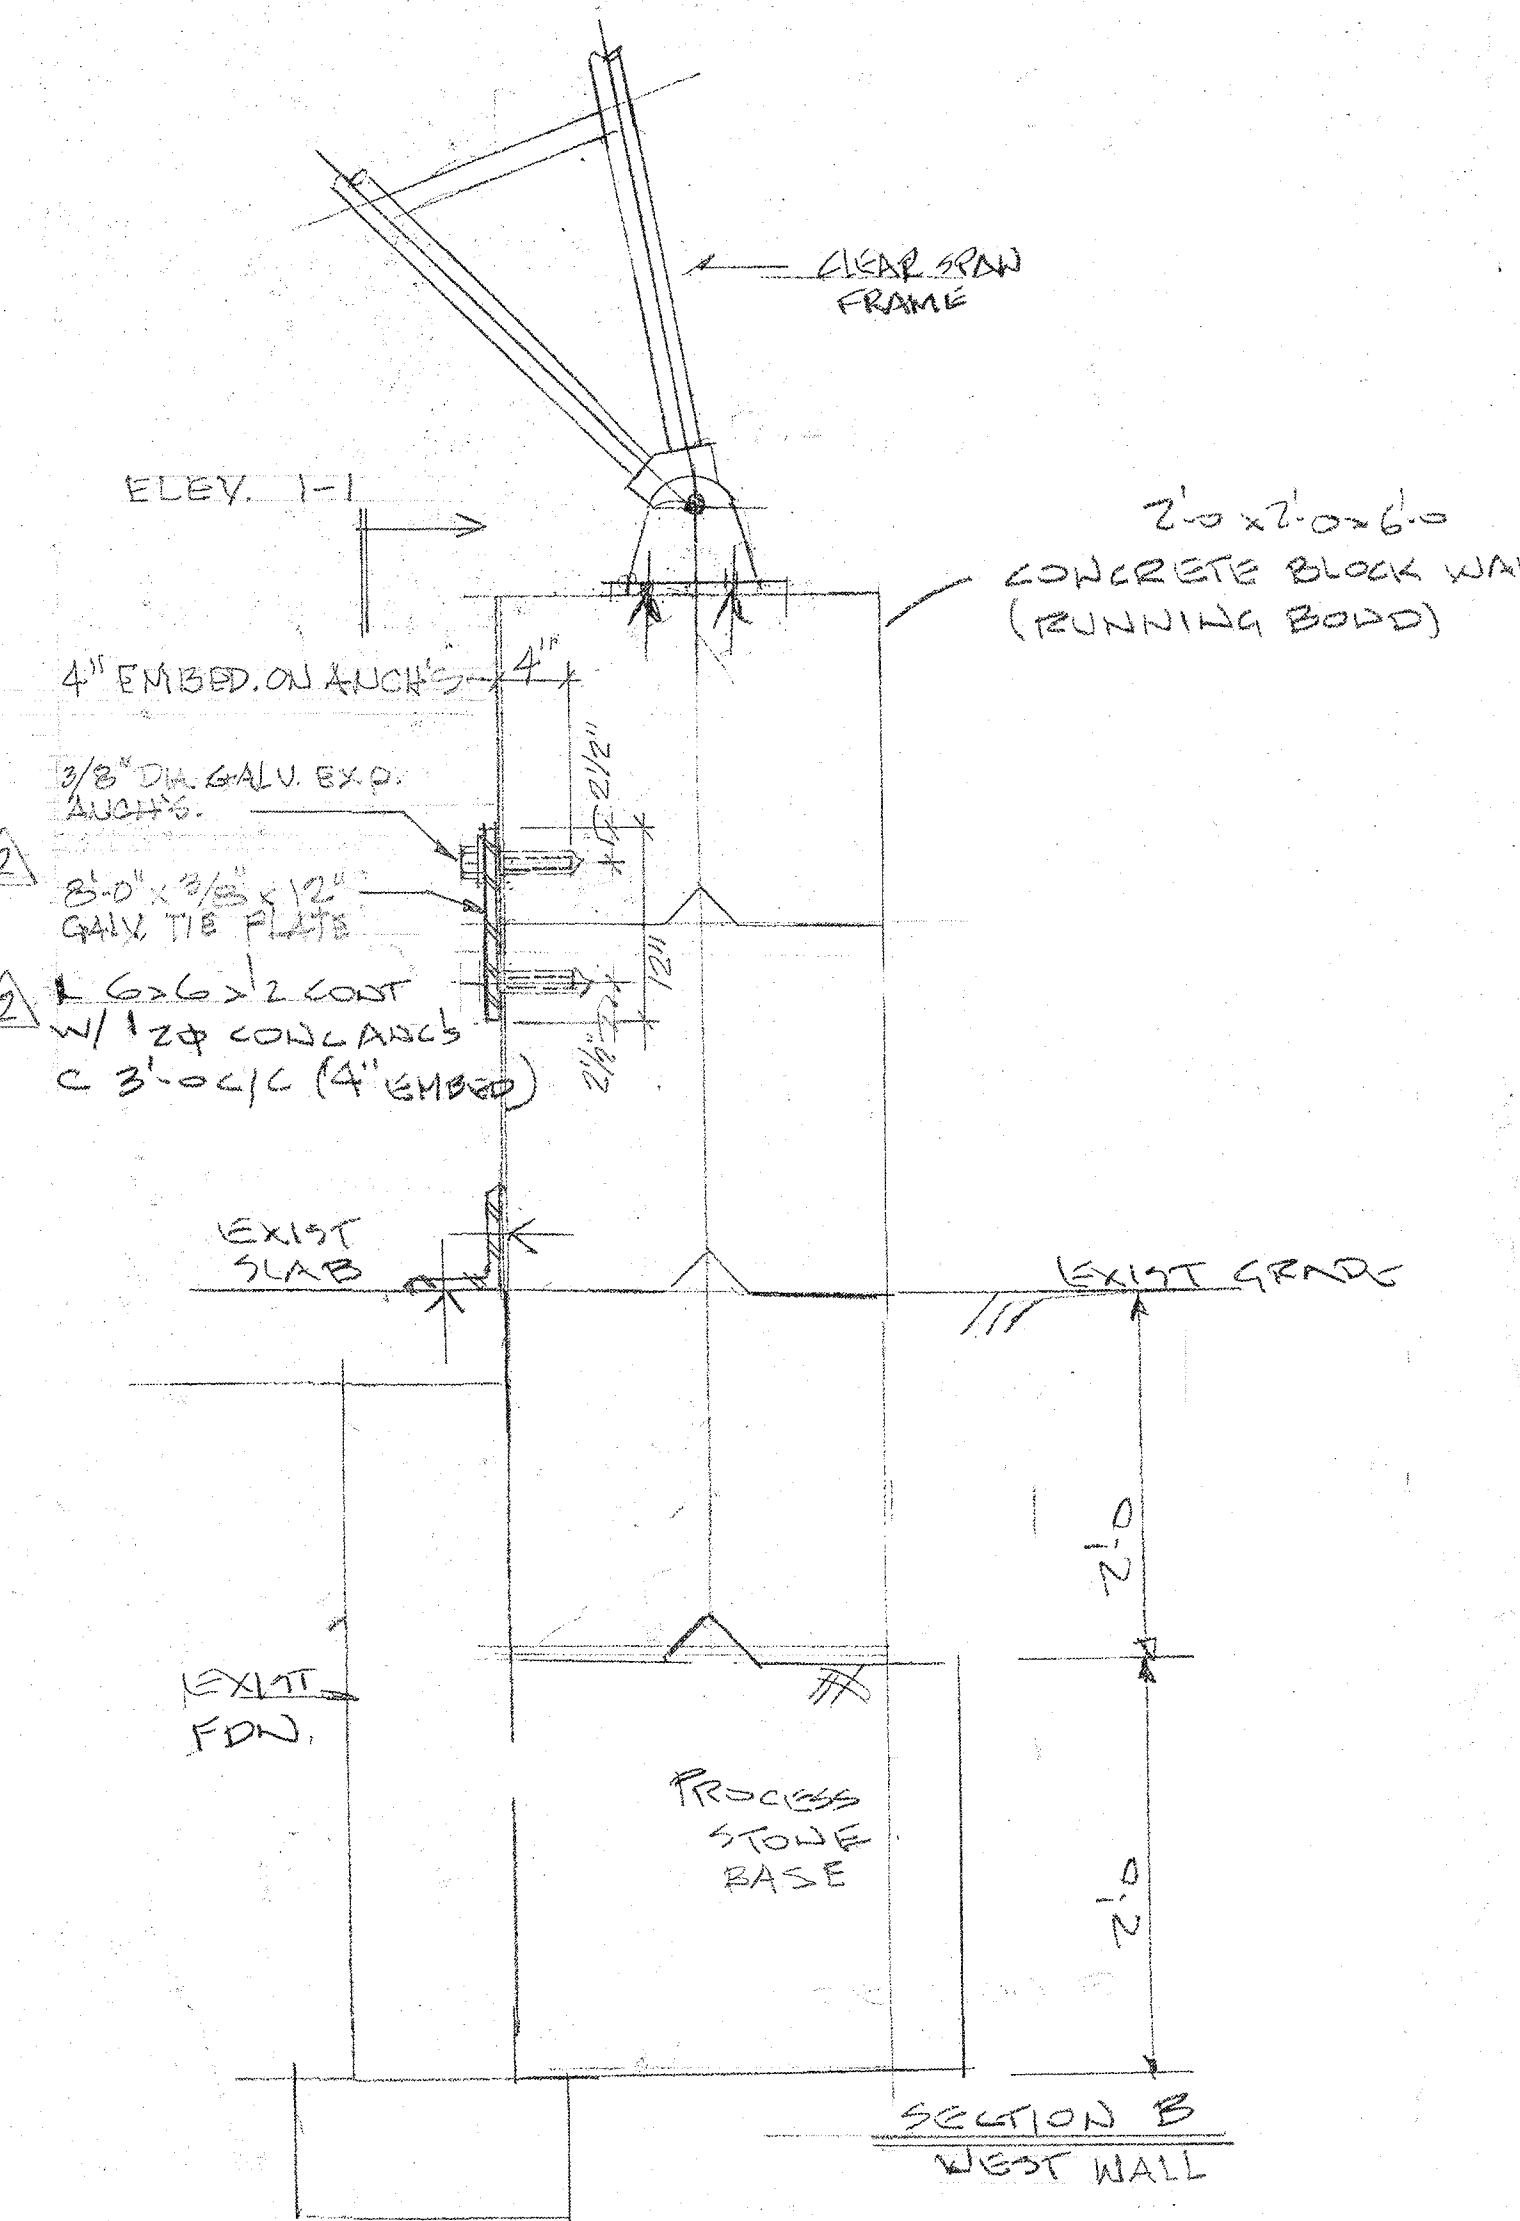 CLEAR SPAN
FRAME
ELEV. 1-1
2'-0 x 2'-0 x 6'-0
CONCRETE BLOCK WA
(RUNNING BOND)
4" EMBED. ON ANCH'S
4"
3/8" DIA. GALV. EXP.
ANCH'S.
2 1/2"
2
8'-0" x 3/8" x 12"
GALV. TIE PLATE
12"
2
L 6x6x1/2 CONT
W/ 1/2φ CONC ANC'S
C 3'-0 C/C (4" EMBED)
2 1/2"
EXIST
SLAB
EXIST GRADE
2'-0
EXIST
FDN.
PROCESS
STONE
BASE
2'-0
SECTION B
WEST WALL